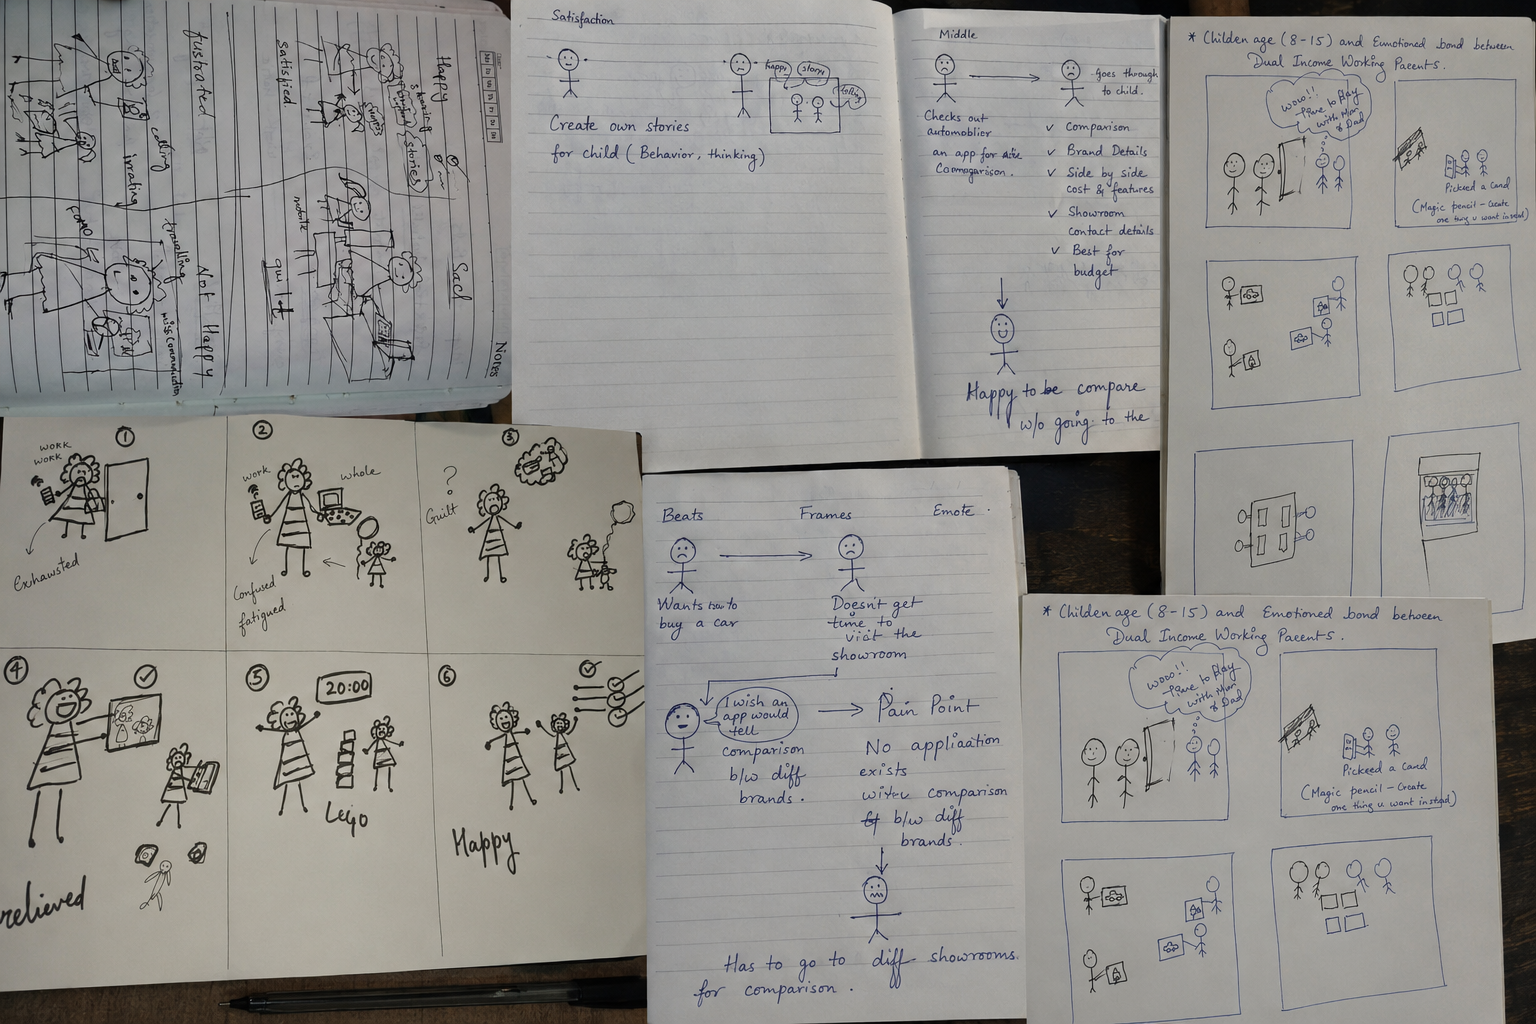 Notes
Happy
sharing
stories
satisfied
Sad
quilt
fustrated
calling
irrating
Not Happy
travelling
miscommunication
FOMO
Satisfaction
Happy
Story
Create own stories
for child (Behavior, thinking)
Middle
Goes through
to child.
Checks out
automoblier
an app for
Comparison.
✓ Comparison
✓ Brand Details
✓ Side by side
cost & features
✓ Showroom
contact details
✓ Best for
budget
Happy to be compare
w/o going to the
* Childen age (8-15) and Emotioned bond between
Dual Income Working Parents.
Wow!!
Time to Play
with Mum
& Dad
Pickeed a Card
(Magic pencil - Create
one thing u want instead)
1
WORK
WORK
Exhawsted
2
work
whole
Confused
fatigued
3
?
Guilt
4
relieved
5
20:00
Lego
6
Happy
Beats Frames Emote.
Wants to
buy a car
Doesn't get
time to
visit the
showroom
I wish an
app would
tell
comparison
b/w diff
brands.
Pain Point
No appliation
exists
comparison
b/w diff
brands.
Has to go to diff showrooms.
for comparison.
* Childen age (8-15) and Emotioned bond between
Dual Income Working Parents.
Wow!!
Time to Play
with Mum
& Dad
Pickeed a Card
(Magic pencil - Create
one thing u want instead)